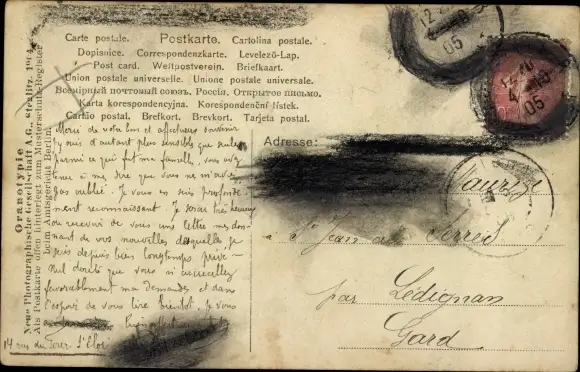 Carte postale. Postkarte. Cartolina postale.
Dopisnice. Correspondenzkarte. Levelező-Lap.
Post card. Weltpostverein. Briefkaart.
Union postale universelle. Unione postale universale.
Всемірный почтовый союзъ. Россія. Открытое письмо.
Karta korespondencyjna. Korespondenční listek.
Cartão postal. Brefkort. Brevkort. Tarjeta postal.
Orthotypie
Neue Photographische Gesellschaft A.G., Steglitz. 1904.
Als Postkarte offen hinterlegt zum Musterschutz-Register
beim Amtsgericht Berlin.
Merci de votre bon et affectueux souvenir
j'y suis d'autant plus sensible que seule
parmi ce qui fut ma famille, vous
à me dire que vous ne m'avez
pas oublié. Je vous en suis profondé-
ment reconnaissant. Je serai très heureux
de recevoir de vous une lettre me don-
nant de vos nouvelles desquelles je
suis depuis bien longtemps privé
Nul doute que vous
favorablement ma demande et dans
l'espoir de vous lire bientôt, je vous
14 rue du Four S'Eloi
Adresse:
à St Jean de Serres
par Lédignan
Gard
12 20
4
05
12 20
4
05